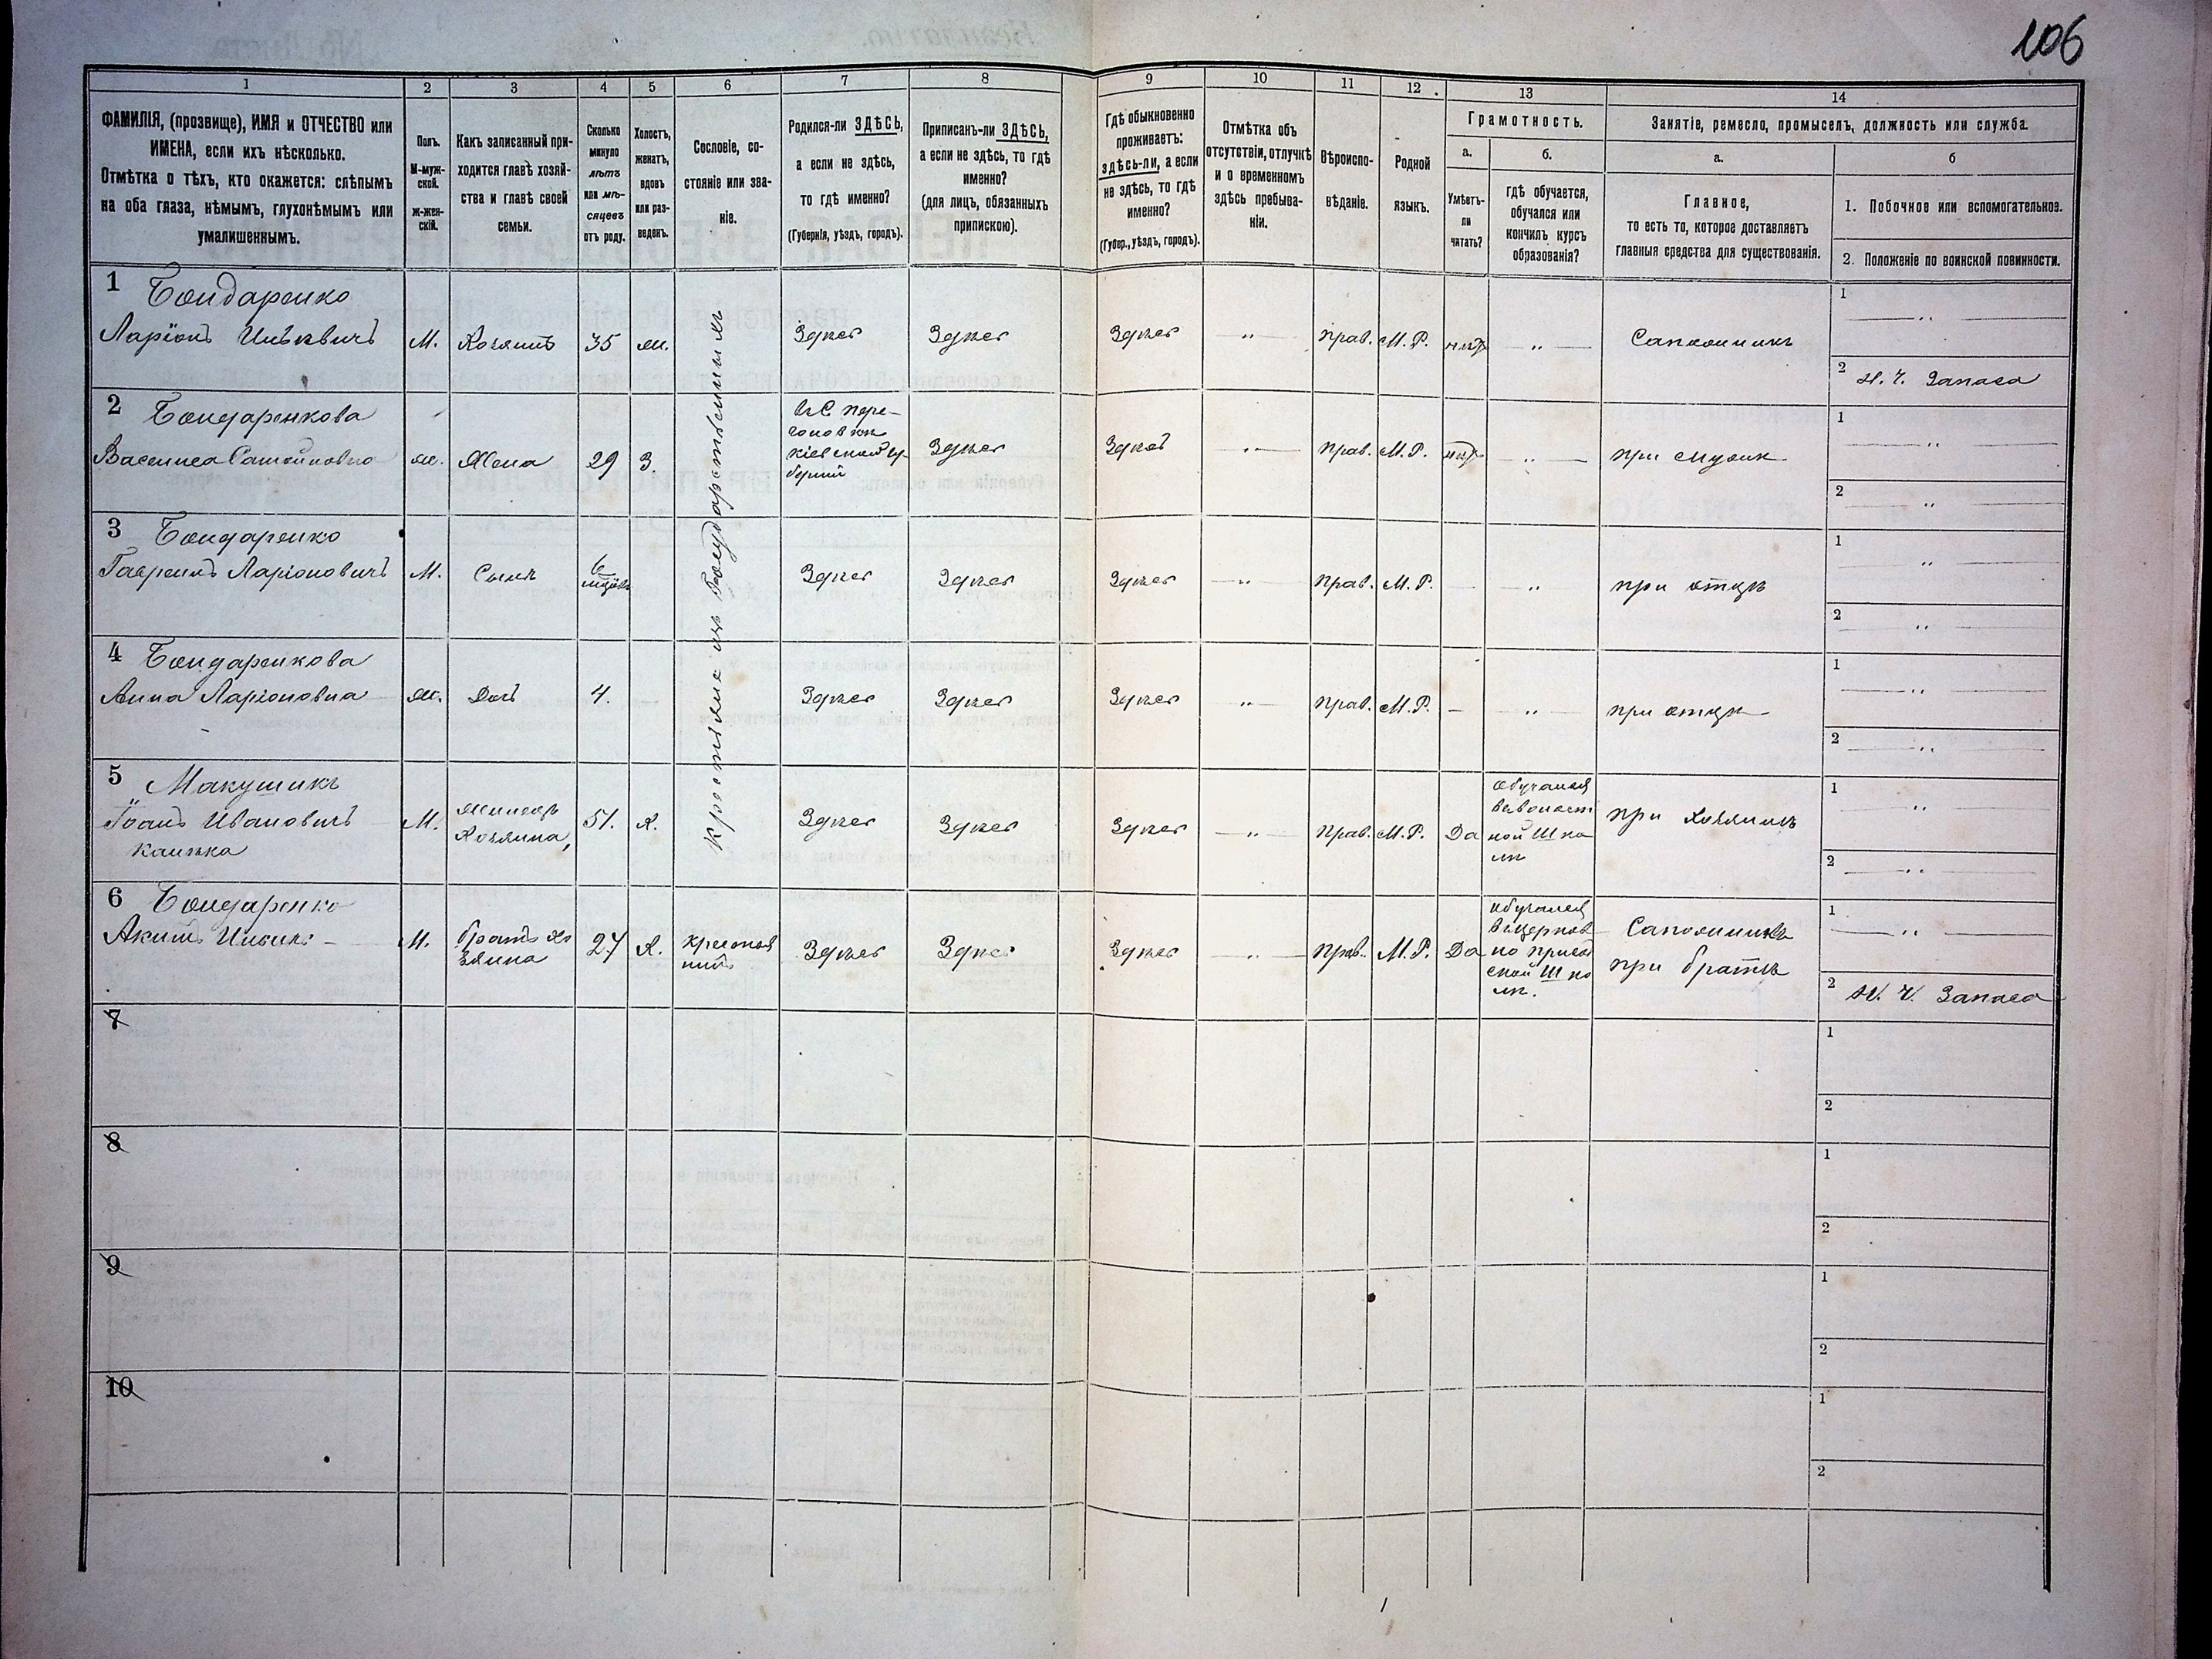 106
1
2
3
4
5
6
7
8
9
10
11
12
13
14
ФАМИЛІЯ, (прозвище), ИМЯ и ОТЧЕСТВО или
ИМЕНА, если ихъ нѣсколько.
Отмѣтка о тѣхъ, кто окажется: слѣпымъ
на оба глаза, нѣмымъ, глухонѣмымъ или
умалишеннымъ.
Полъ.
М-муж-
ской.
Ж-жен-
скій.
Какъ записанный при-
ходится главѣ хозяй-
ства и главѣ своей
семьи.
Сколько
минуло
лѣтъ
или мѣ-
сяцевъ
отъ роду.
Холостъ,
женатъ,
вдовъ
или раз-
веденъ.
Сословіе, со-
стояніе или зва-
ніе.
Родился-ли ЗДѢСЬ,
а если не здѣсь,
то гдѣ именно?
(Губернія, уѣздъ, городъ).
Приписанъ-ли ЗДѢСЬ,
а если не здѣсь, то гдѣ
именно?
(для лицъ, обязанныхъ
припискою).
Гдѣ обыкновенно
проживаетъ:
здѣсь-ли, а если
не здѣсь, то гдѣ
именно?
(Губер., уѣздъ, городъ).
Отмѣтка объ
отсутствіи, отлучкѣ
и о временномъ
здѣсь пребыва-
ніи.
Вѣроиспо-
вѣданіе.
Родной
языкъ.
Грамотность.
а.
Умѣетъ-
ли
читать?
б.
гдѣ обучается,
обучался или
кончилъ курсъ
образованія?
Занятіе, ремесло, промыселъ, должность или служба.
а.
Главное,
то есть то, которое доставляетъ
главныя средства для существованія.
б
1. Побочное или вспомогательное.
2. Положеніе по воинской повинности.
1 Бондаренко
Ларіонъ М. Хозяинъ 35 ж. Здѣсь Здѣсь Здѣсь „ Прав. М. Р. нѣтъ „ Сапожникъ
1 „
2 Н. Ч. Запаса
Крестьяне изъ Государственныхъ
2 Бондаренкова
Василиса ж. Жена 29 З.
въ С. Пере-
Кіевской гу-
берніи
Здѣсь Здѣсь „ Прав. М. Р. нѣтъ „ при мужѣ
1 „
2 „
3 Бондаренко
Гавріилъ Ларіоновичъ М. Сынъ 6
Здѣсь Здѣсь Здѣсь „ Прав. М. Р. – „ при отцѣ
1 „
2 „
4 Бондаренкова
Анна Ларіоновна ж. Дочь 4. Здѣсь Здѣсь Здѣсь „ Прав. М. Р. – „ при отцѣ
1 „
2 „
5 Макушикъ
Іоанъ Ивановичъ
М.
Хозяина,
51. Х. Здѣсь Здѣсь Здѣсь „ Прав. М. Р. Да
обучался
ной Шко
лѣ
при Хозяинѣ
1 „
2 „
6 Бондаренко
Акимъ М.
братъ хо
зяина
27 Х.
Здѣсь Здѣсь Здѣсь „ Прав. М. Р. Да
обучался
в церков
но приход
ской Шко
лѣ.
Сапожникъ
при братѣ
1 „
2 Н. Ч. Запаса
7
1
2
8
1
2
9
1
2
10
1
2